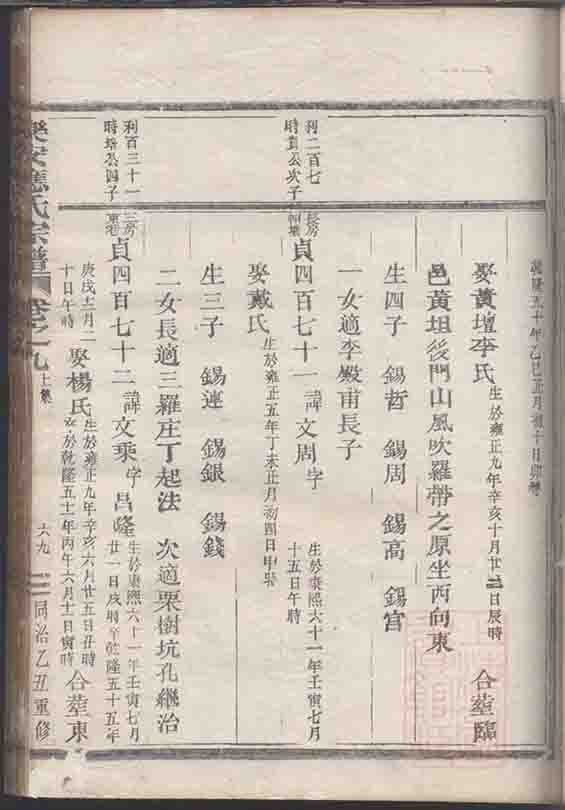 乾隆五十年乙巳正月初十日卯時
娶黃壇李氏 生於雍正九年辛亥十月廿二日辰時 合塟臨
邑黃坦後門山風吹羅帶之原坐西向東
生四子 錫哲 錫周 錫高 錫官
一女適李殿甫長子
利二百七
時貴公次子
長房
貞四百七十一 諱文周字 生於康熙六十一年壬寅七月
十五日午時
娶戴氏 生於雍正五年丁未正月初四日申時
生三子 錫連 錫銀 錫錢
二女長適三羅庄丁起法 次適栗樹坑孔繼治
利百三十一
時培公四子
三房
東巷
貞四百七十二 諱文乘字昌隆 生於康熙六十一年壬寅七月
廿一日戌時卒乾隆五十五年
庚戌十二月二
十日午時 娶楊氏 生於雍正九年辛亥六月廿五日丑時
卒於乾隆五十一年丙午六月十二日寅時 合塟東
樂安應氏宗譜 卷之九 上集 六九 同治乙丑重修